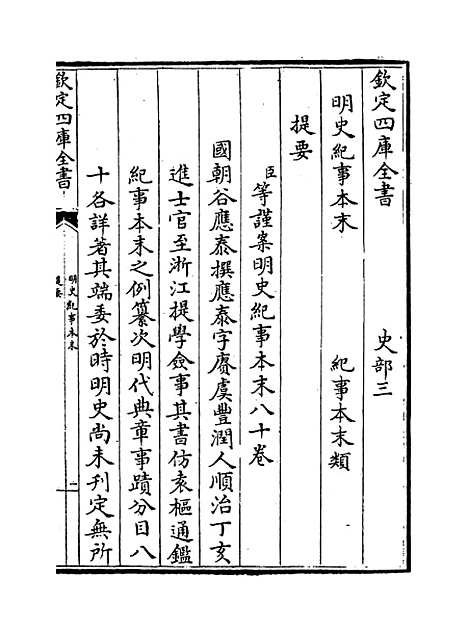 欽定四庫全書 史部三
明史紀事本末 紀事本末類
提要
臣等謹案明史紀事本末八十卷
國朝谷應泰撰應泰字賡虞豐潤人順治丁亥
進士官至浙江提學僉事其書仿袁樞通鑑
紀事本末之例纂次明代典章事蹟分目八
十各詳著其端委於時明史尚未刊定無所
欽定四庫全書
明史紀事本末
提要
一